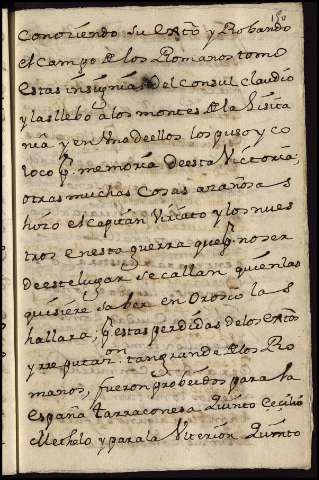 150
Conoriendo su extto y Robando
el campo de los Romanos tomo
estas insignias del consul claudio
y las llebo a los montes de la lusita
nia y en Vna de ellos los puso y co
loco pr. memoria de esta Victoria;
otras muchas cosas azañosas
hizo el capitan Viriato y los nues
tros en esta guerra que pr. no ser
de este lugar se callan quien las
quisiere saber en Orosio las
hallara, pr estas perdidas de los extos
y rre putaron tan grande de los Ro
manos, fueron probeidos para la
España Tarraconesa Quinto Cecilio
Methelo y para la Vlterior Quinto